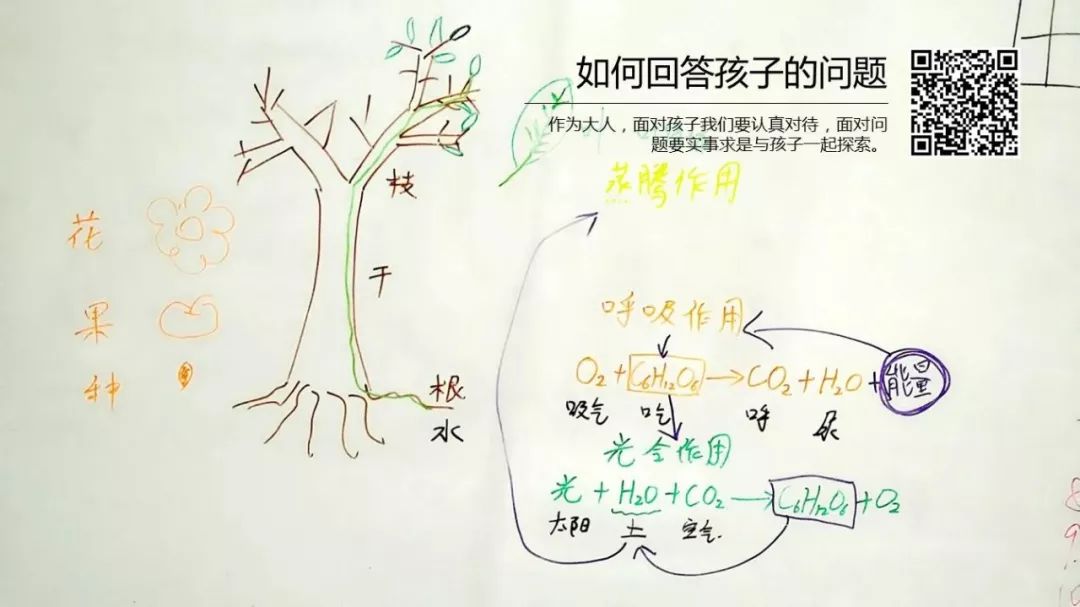 如何回答孩子的问题
作为大人，面对孩子我们要认真对待，面对问
题要实事求是与孩子一起探索。
蒸腾作用
枝
花
干
果
种
根
水
呼吸作用
O₂ + C₆H₁₂O₆ → CO₂ + H₂O + 能量
吸气 吃 呼 尿
光合作用
光 + H₂O + CO₂ → C₆H₁₂O₆ + O₂
太阳 土 空气
8
9
10